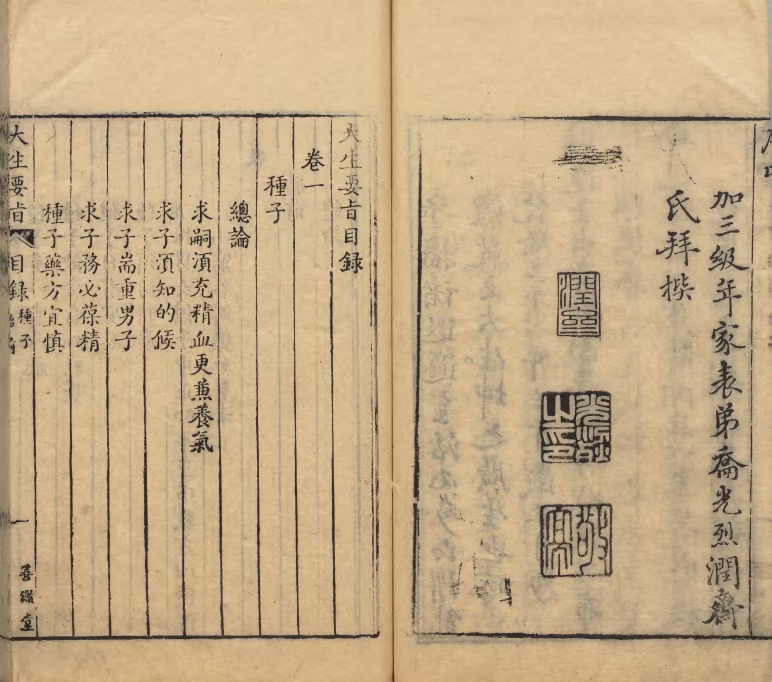 加三級年家表弟喬光烈潤齋
氏拜撰
潤齋
大生要旨目録
卷一
種子
總論
求嗣須充精血更蕉養氣
求子須知的候
求子耑重男子
求子務必葆精
種子藥方宜慎
大生要旨 目録 種子 一